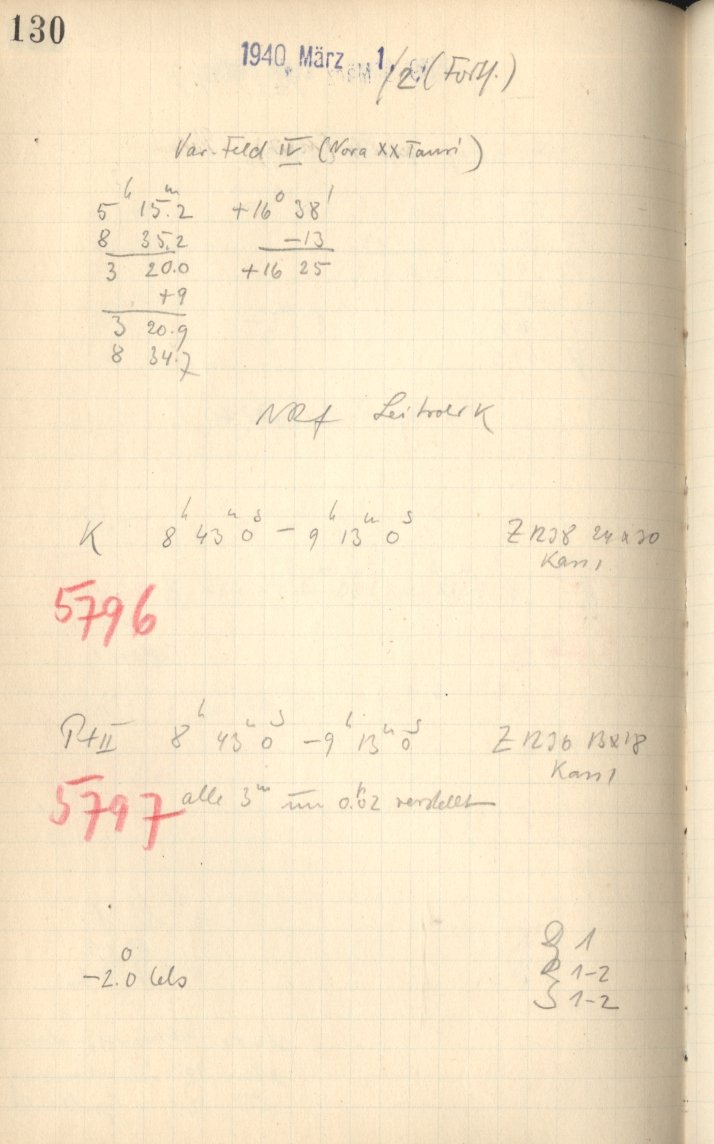 130
1940 März 1./2. (Forts.)
Var. Feld IV (Nova XX Tauri)
5ʰ 15ᵐ.2 +16° 38'
8 35.2 −13
3 20.0 +16 25
+9
3 20.9
8 34.7
K
K 8ʰ 43ᵐ 0ˢ − 9ʰ 13ᵐ 0ˢ 24x30
5796
8ʰ 43ᵐ 0ˢ − 9ʰ 13ᵐ 0ˢ 13x18
5797 alle 3ᵐ um 0.02 verstellt
−2.°0 Cels 1
1-2
S 1-2